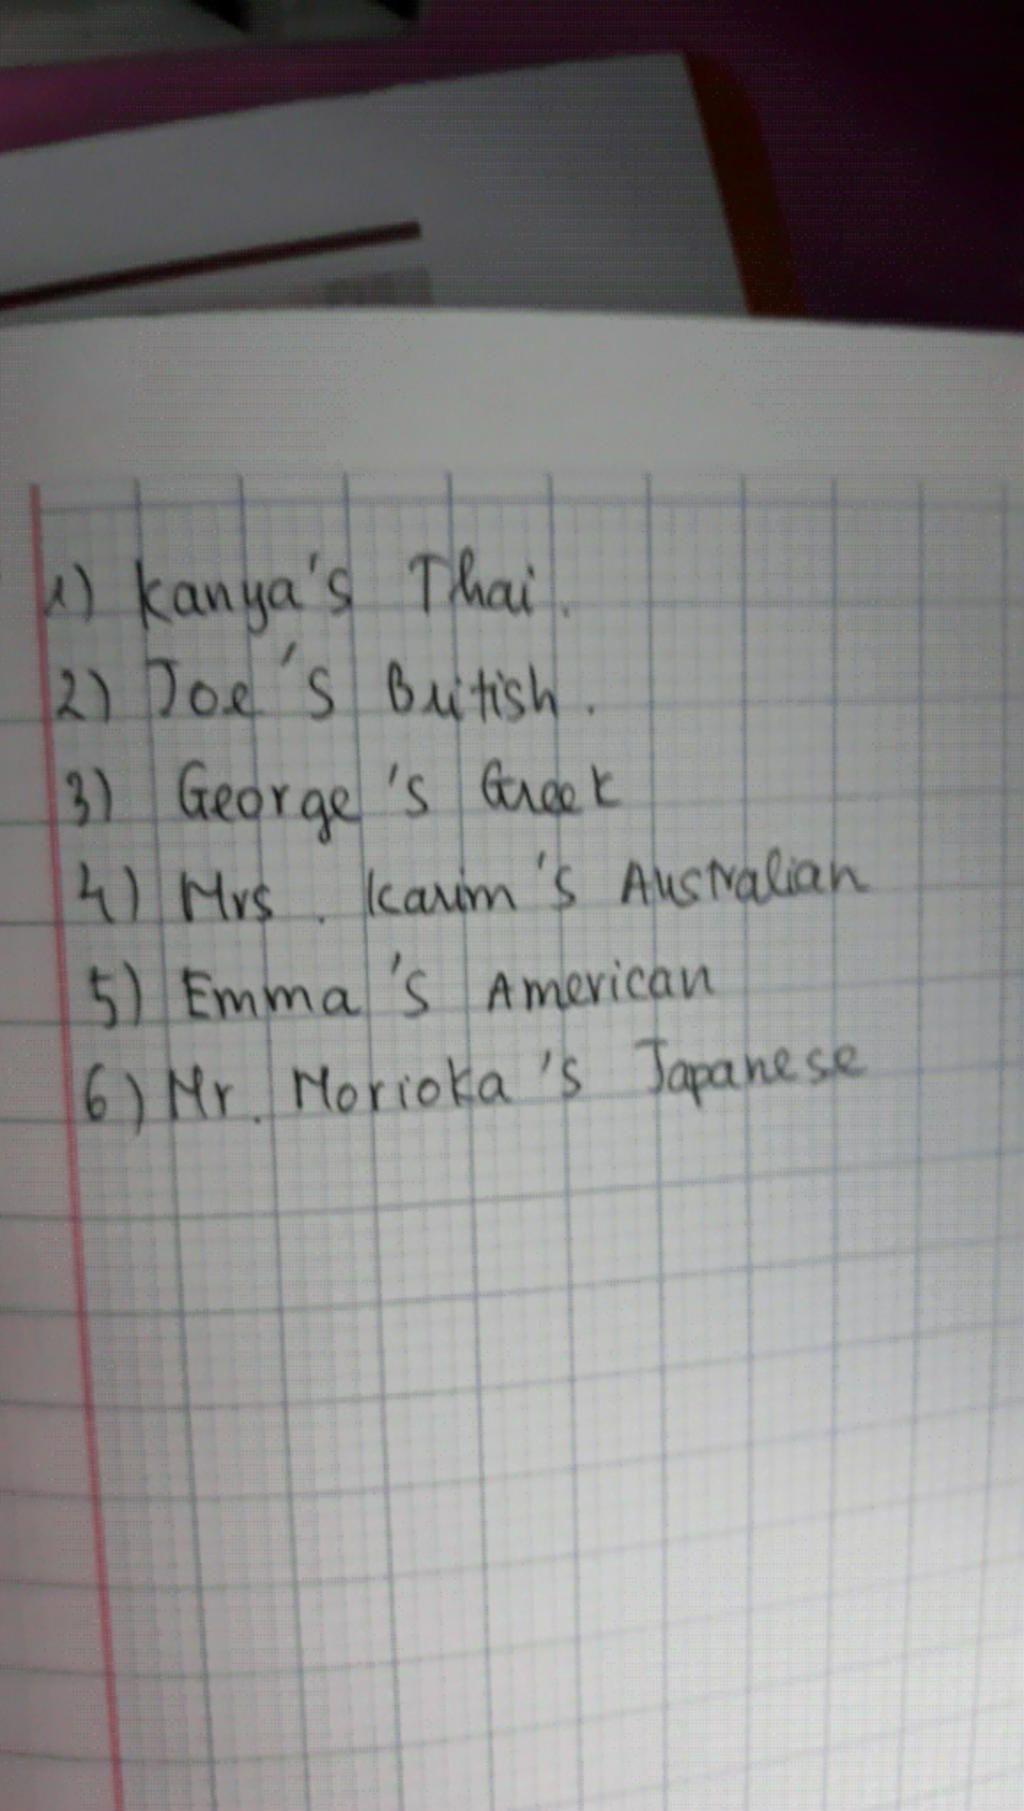 1) Kanya's Thai.
2) Joe's British.
3) George's Greek
4) Mrs. Karim's Australian
5) Emma's American
6) Mr. Morioka's Japanese